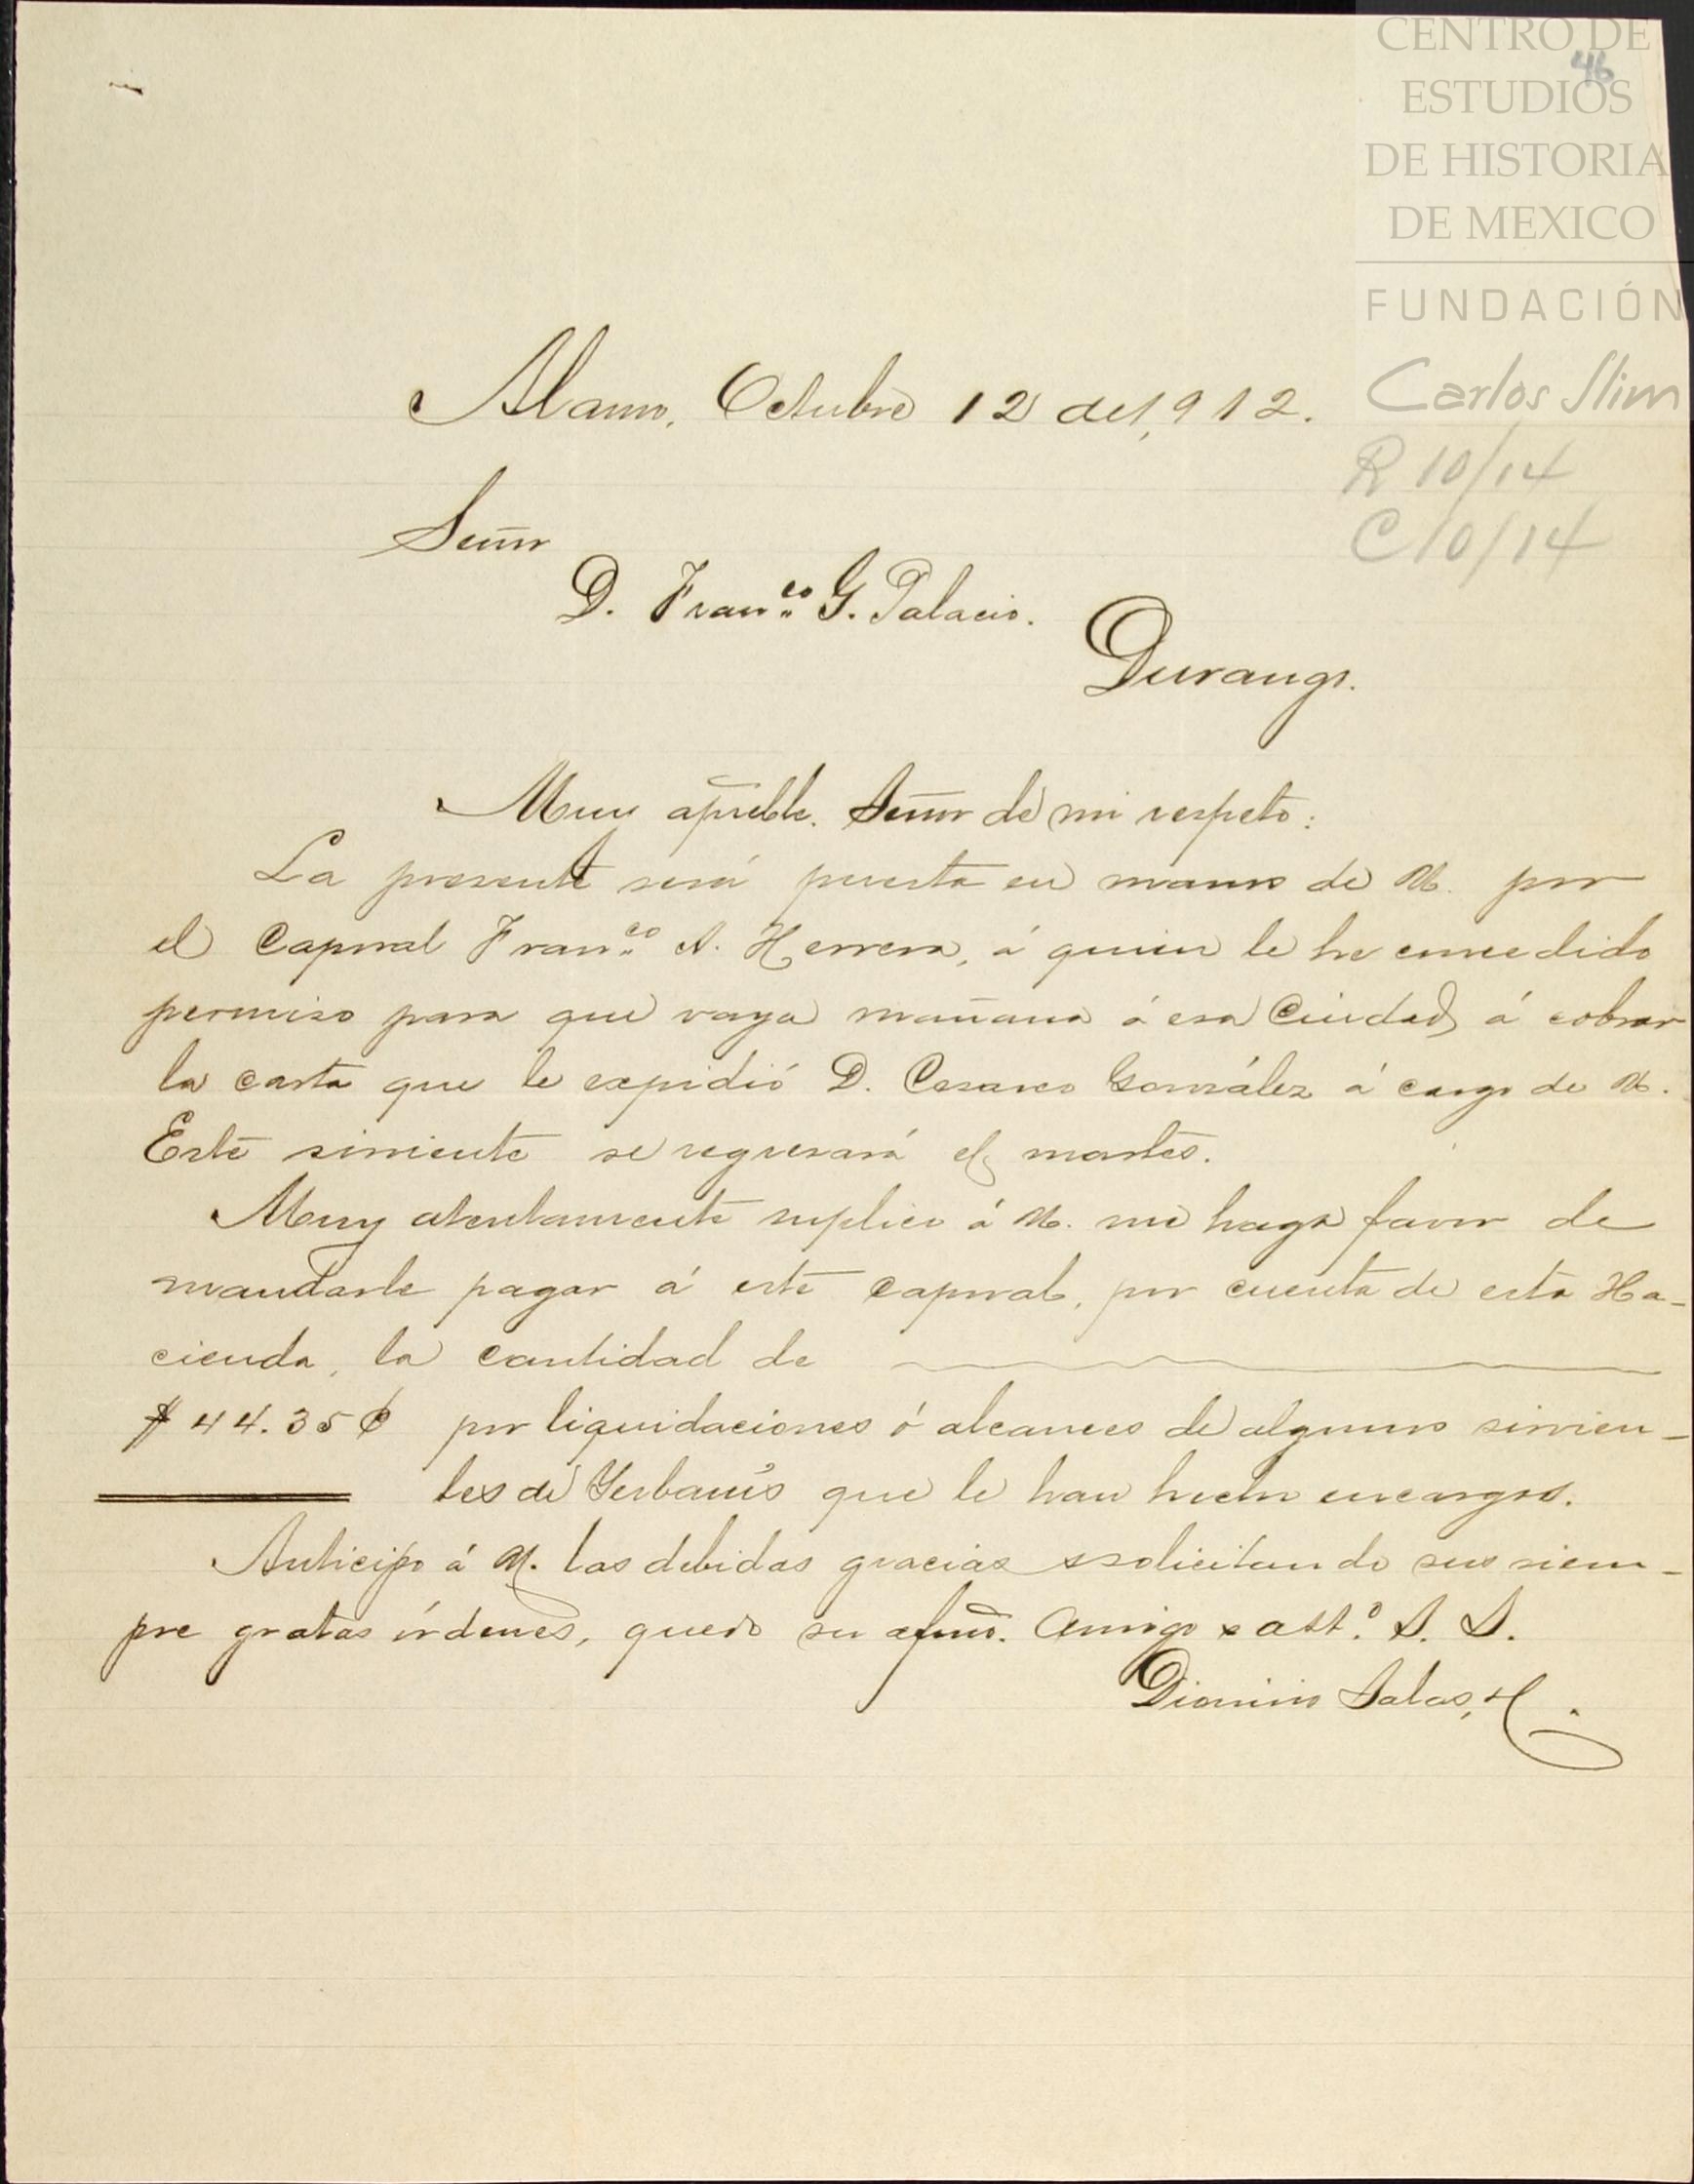 CENTRO DE
46
ESTUDIOS
DE HISTORIA
DE MEXICO
FUNDACIÓN
Carlos Slim
Alamo, Octubre 12 de 1,912.
R 10/14
C 10/14
Señor
D. Franco G. Palacio.
Durango.
Muy apreble. Señor de mi respeto:
La presente será puesta en manos de U. por
el Caporal Franco N. Herrera, á quien le he concedido
permiso para que vaya mañana á esa Ciudad, á cobrar
la carta que le expidió D. Cesareo González á cargo de U.
Este sirviente se regresará el martes.
Muy atentamente suplico á U. me haga favor de
mandarle pagar á este caporal, por cuenta de esta Ha-
cienda, la cantidad de
$ 44.35 ¢ por liquidaciones ó alcances de algunos sirvien-
tes de Yerbanís que le han hecho encargos.
Anticipo á U. las debidas gracias y solicitando sus siem-
pre gratas órdenes, quedo su afmo. amigo y att.o S. S.
Dionisio Salas, H.